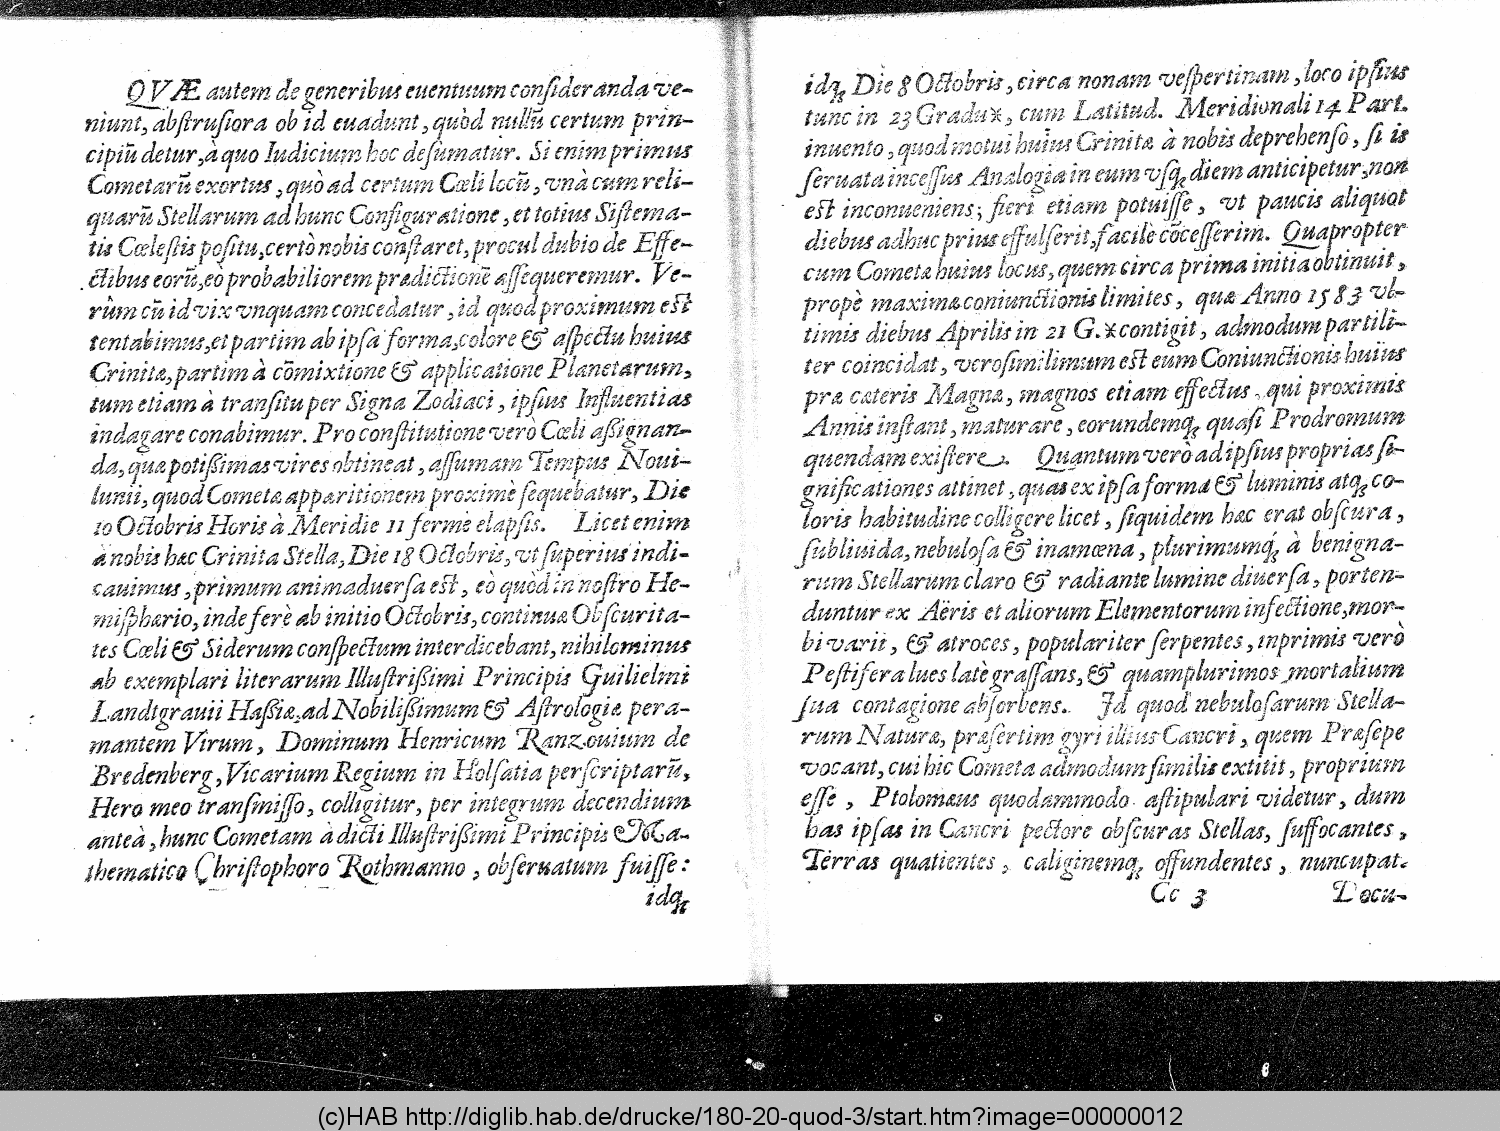 QVÆ autem de generibus euentuum consideranda ve-
niunt, abstrusiora ob id euadunt, quòd nullũ certum prin-
cipiũ detur, à quo Iudicium hoc desumatur. Si enim primus
Cometarũ exortus, quò ad certum Cœli locũ, vnà cum reli-
quarũ Stellarum ad hunc Configuratione, et totius Sistema-
tis Cœlestis positu, certò nobis constaret, procul dubio de Effe-
ctibus eorũ, eò probabiliorem prædictionẽ assequeremur. Ve-
rùm cũ id vix vnquam concedatur, id quod proximum est
tentabimus, et partim ab ipsa forma, colore & aspectu huius
Crinitæ, partim à cõmixtione & applicatione Planetarum,
tum etiam à transitu per Signa Zodiaci, ipsius Influentias
indagare conabimur. Pro constitutione verò Cœli aßignan-
da, quæ potißimas vires obtineat, assumam Tempus Noui-
lunii, quod Cometæ apparitionem proximè sequebatur, Die
10 Octobris Horis à Meridie 11 fermè elapsis. Licet enim
à nobis hæc Crinita Stella, Die 18 Octobris, vt superius indi-
cauimus, primum animaduersa est, eò quòd in nostro He-
misphærio, inde ferè ab initio Octobris, continuæ Obscurita-
tes Cœli & Siderum conspectum interdicebant, nihilominus
ab exemplari literarum Illustrißimi Principis Guilielmi
Landtgrauii Haßiæ, ad Nobilißimum & Astrologiæ pera-
mantem Virum, Dominum Henricum Ranzouium de
Bredenberg, Vicarium Regium in Holsatia perscriptarũ,
Hero meo transmisso, colligitur, per integrum decendium
anteà, hunc Cometam à dicti Illustrißimi Principis Ma-
thematico Christophoro Rothmanno, obseruatum fuisse:
idq́;
idq́; Die 8 Octobris, circa nonam vespertinam, loco ipsius
tunc in 23 Gradu ♓, cum Latitud. Meridionali 14 Part.
inuento, quod motui huius Crinitæ à nobis deprehenso, si is
seruata incessus Analogia in eum vsq; diem anticipetur, non
est inconueniens; fieri etiam potuisse, vt paucis aliquot
diebus adhuc prius effulserit, facilè cõcesserim. Quapropter
cum Cometæ huius locus, quem circa prima initia obtinuit,
propè maximæ coniunctionis limites, quæ Anno 1583 vl-
timis diebus Aprilis in 21 G. ♓ contigit, admodum partili-
ter coincidat, verosimilimum est eum Coniunctionis huius
præ cæteris Magnæ, magnos etiam effectus, qui proximis
Annis instant, maturare, eorundemq́; quasi Prodromum
quendam existere. Quantum verò ad ipsius proprias si-
gnificationes attinet, quas ex ipsa forma & luminis atq; co-
loris habitudine colligere licet, siquidem hæc erat obscura,
subliuida, nebulosa & inamœna, plurimumq́; à benigna-
rum Stellarum claro & radiante lumine diuersa, porten-
duntur ex Aëris et aliorum Elementorum infectione, mor-
bi varii, & atroces, populariter serpentes, inprimis verò
Pestifera lues latè grassans, & quamplurimos mortalium
sua contagione absorbens. Id quod nebulosarum Stella-
rum Natura, præsertim gyri illius Cancri, quem Præsepe
vocant, cui hic Cometa admodum similis extitit, proprium
esse, Ptolomæus quodammodo astipulari videtur, dum
has ipsas in Cancri pectore obscuras Stellas, suffocantes,
Terras quatientes, caliginemq́; offundentes, nuncupat.
Cc 3 Docu-
(c)HAB http://diglib.hab.de/drucke/180-20-quod-3/start.htm?image=00000012